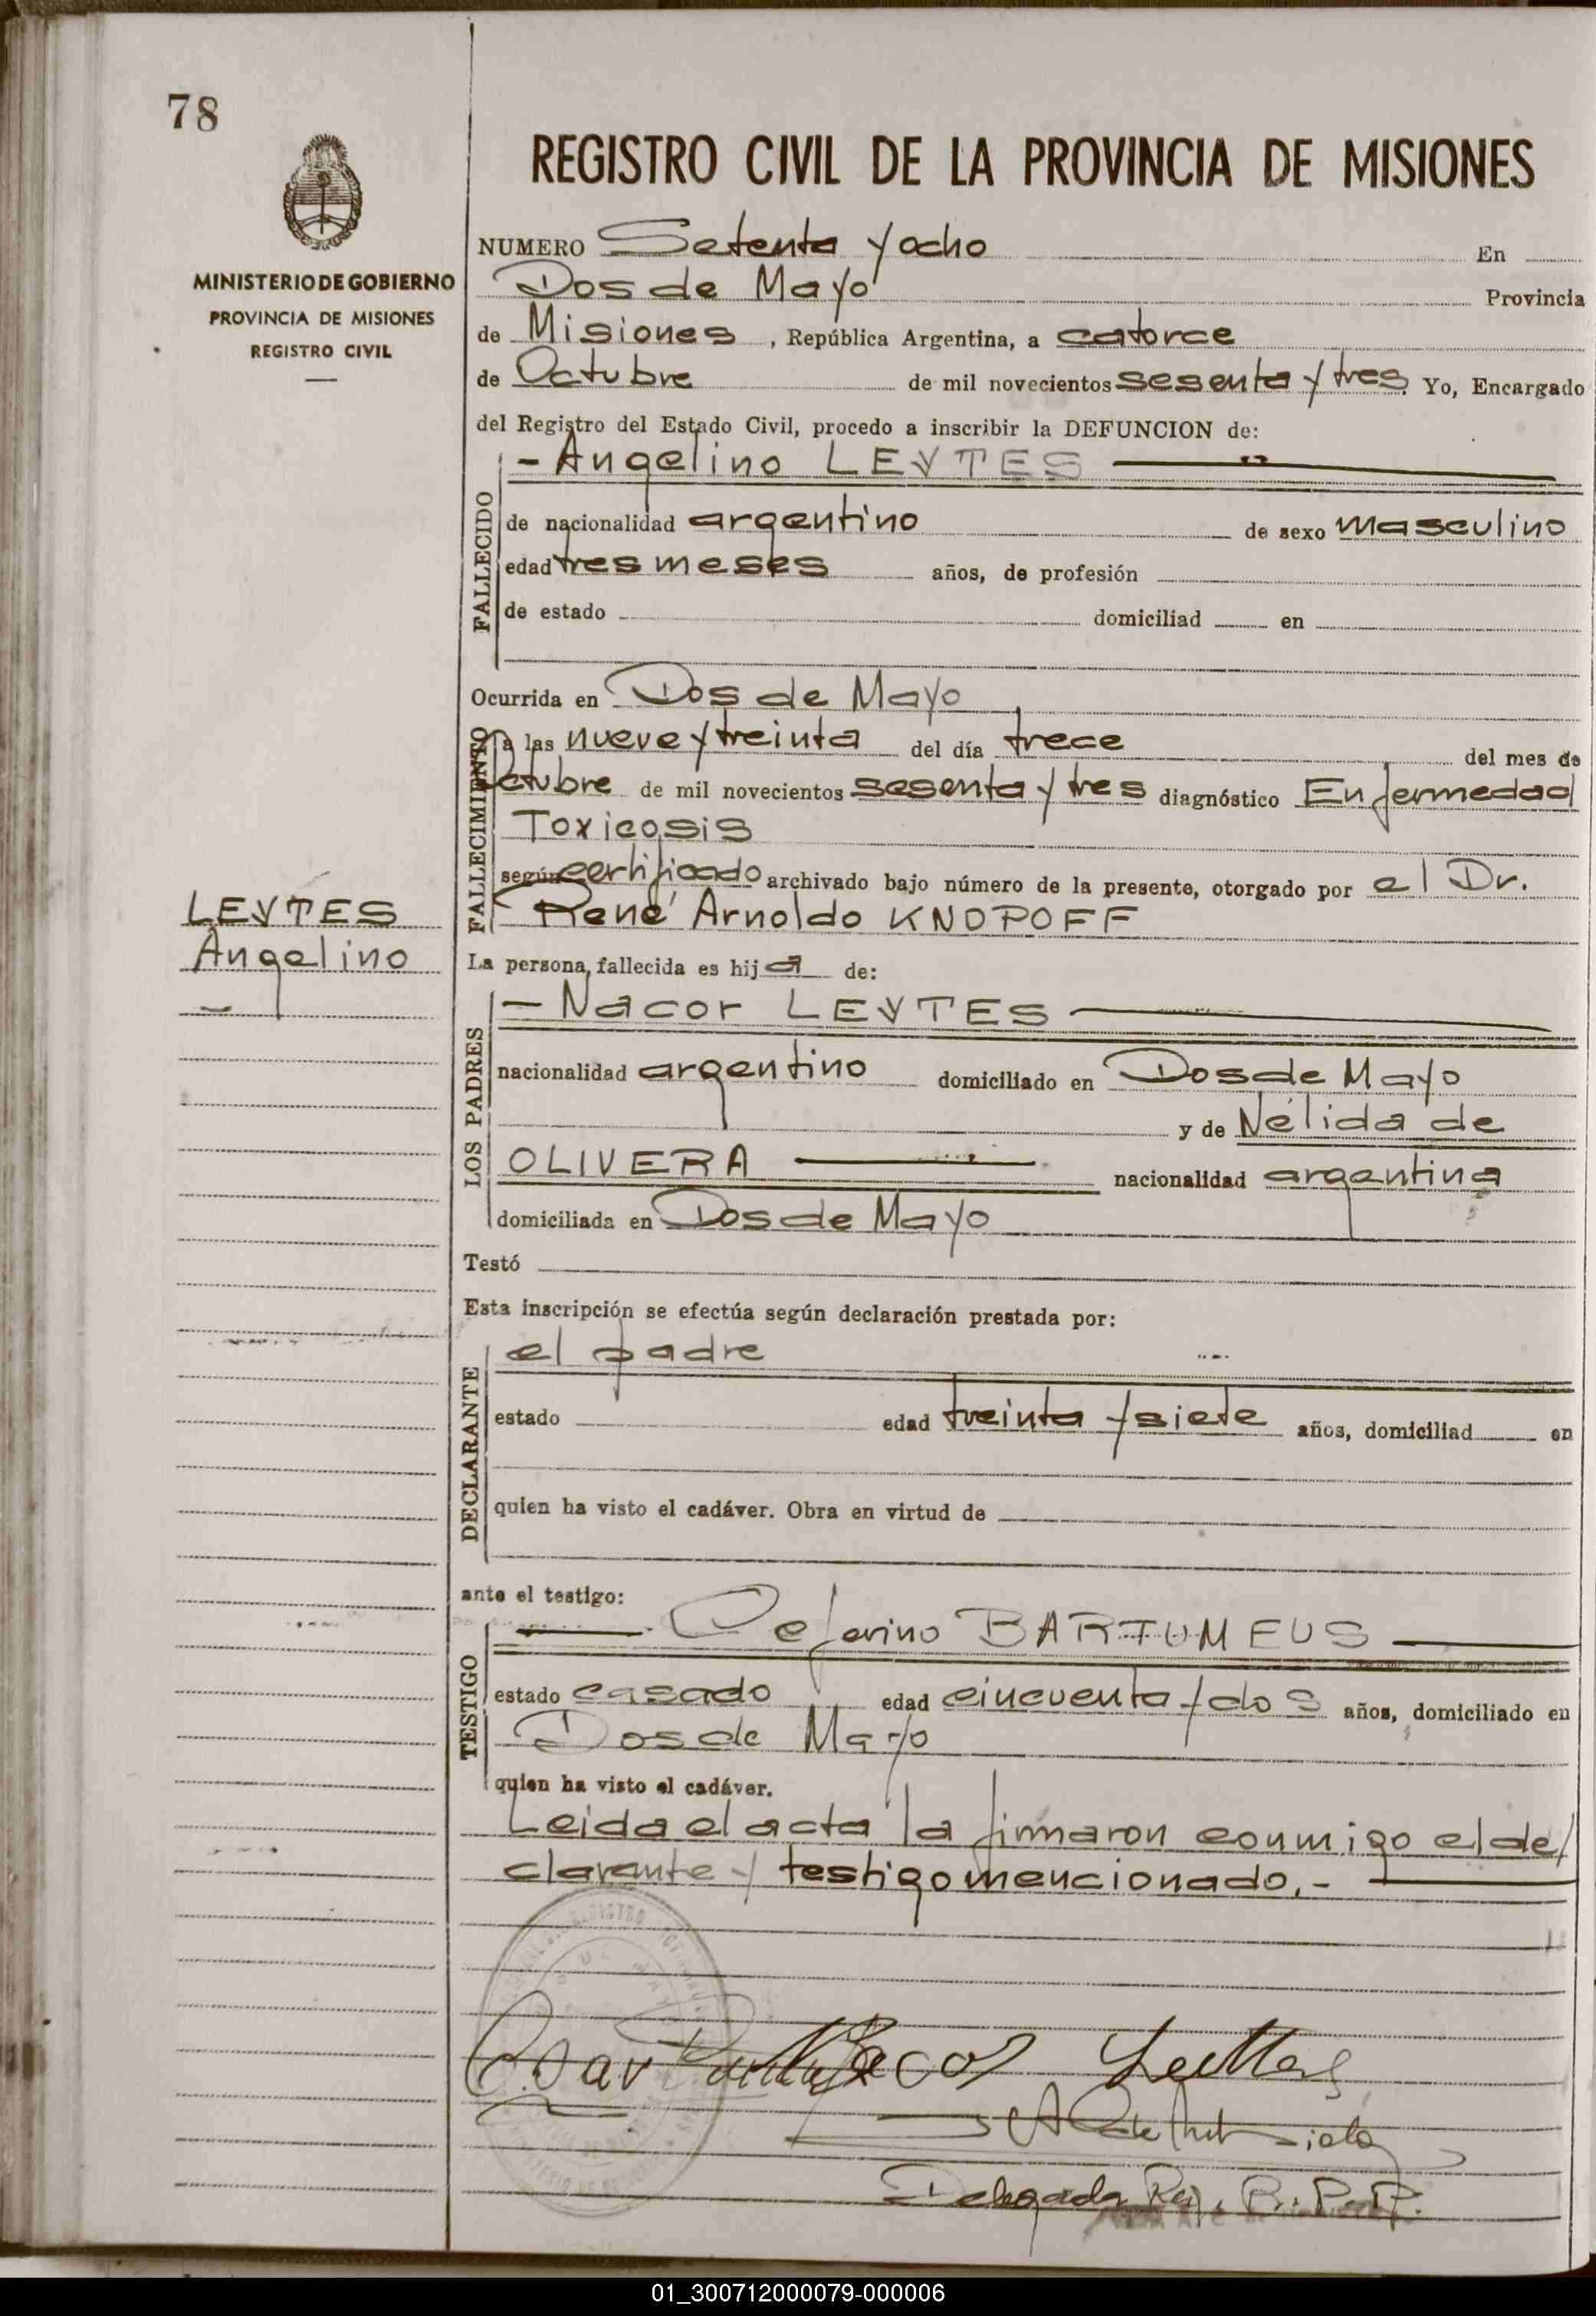 78
MINISTERIO DE GOBIERNO
PROVINCIA DE MISIONES
REGISTRO CIVIL
REGISTRO CIVIL DE LA PROVINCIA DE MISIONES
NUMERO Setenta y ocho En
Dos de Mayo Provincia
de Misiones, República Argentina, a catorce
de Octubre de mil novecientos sesenta y tres. Yo, Encargado
del Registro del Estado Civil, procedo a inscribir la DEFUNCION de:
- Angelino LEYTES
FALLECIDO
de nacionalidad argentino de sexo masculino
edad tres meses años, de profesión
de estado domiciliad en
Ocurrida en Dos de Mayo
FALLECIMIENTO
a las nueve y treinta del día trece del mes de
Octubre de mil novecientos sesenta y tres diagnóstico Enfermedad
Toxicosis
según certificado archivado bajo número de la presente, otorgado por el Dr.
René Arnoldo KNOPOFF
LEYTES
Angelino
La persona fallecida es hija de:
LOS PADRES
- Nacor LEYTES
nacionalidad argentino domiciliado en Dos de Mayo
y de Nélida de
OLIVERA nacionalidad argentina
domiciliada en Dos de Mayo
Testó
Esta inscripción se efectúa según declaración prestada por:
DECLARANTE
el padre
estado edad treinta y siete años, domiciliad en
quien ha visto el cadáver. Obra en virtud de
ante el testigo:
TESTIGO
Ceferino BARTUMEUS
estado casado edad cincuenta y dos años, domiciliado en
Dos de Mayo
quien ha visto el cadáver.
Leida el acta la firmaron conmigo el de/
clarante y testigo mencionado.-
Delegada Reg. P. P.
01_300712000079-000006